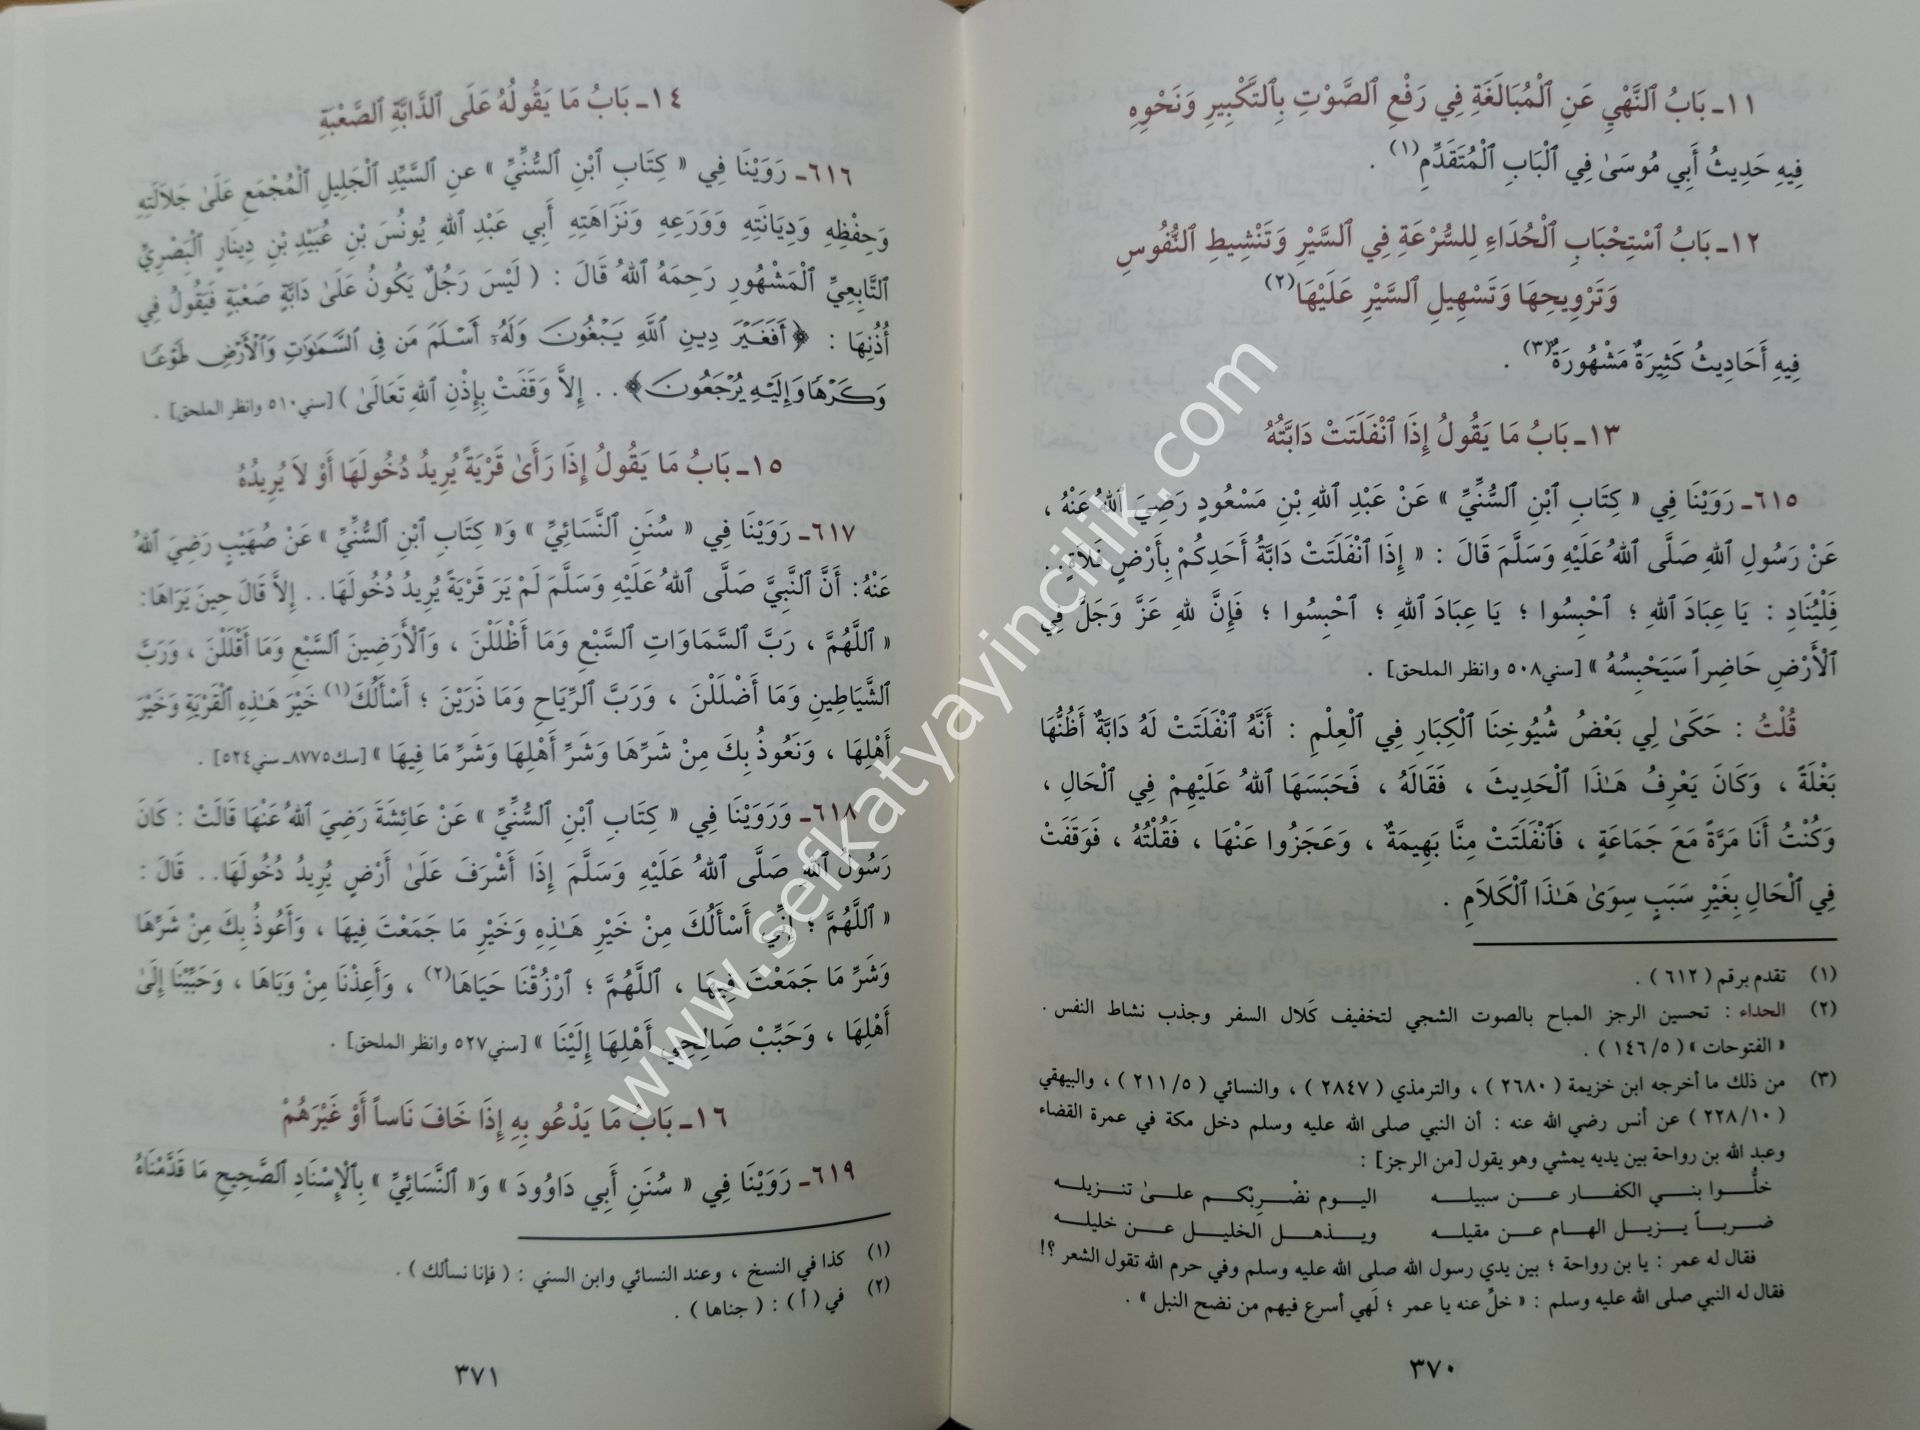 ١١ـ بَابُ ٱلنَّهْيِ عَنِ ٱلْمُبَالَغَةِ فِي رَفْعِ ٱلصَّوْتِ بِٱلتَّكْبِيرِ وَنَحْوِهِ
فِيهِ حَدِيثُ أَبِي مُوسَىٰ فِي ٱلْبَابِ ٱلْمُتَقَدِّمِ(١) .
١٢ـ بَابُ ٱسْتِحْبَابِ ٱلْحُدَاءِ لِلسُّرْعَةِ فِي ٱلسَّيْرِ وَتَنْشِيطِ ٱلنُّفُوسِ
وَتَرْوِيحِهَا وَتَسْهِيلِ ٱلسَّيْرِ عَلَيْهَا(٢)
فِيهِ أَحَادِيثُ كَثِيرَةٌ مَشْهُورَةٌ(٣) .
١٣ـ بَابُ مَا يَقُولُ إِذَا ٱنْفَلَتَتْ دَابَّتُهُ
٦١٥ـ رَوَيْنَا فِي « كِتَابِ ٱبْنِ ٱلسُّنِّيِّ » عَنْ عَبْدِ ٱللهِ بْنِ مَسْعُودٍ رَضِيَ ٱللهُ عَنْهُ ،
عَنْ رَسُولِ ٱللهِ صَلَّى ٱللهُ عَلَيْهِ وَسَلَّمَ قَالَ : « إِذَا ٱنْفَلَتَتْ دَابَّةُ أَحَدِكُمْ بِأَرْضٍ فَلَاةٍ . .
فَلْيُنَادِ : يَا عِبَادَ ٱللهِ ؛ ٱحْبِسُوا ؛ يَا عِبَادَ ٱللهِ ؛ ٱحْبِسُوا ؛ فَإِنَّ للهِ عَزَّ وَجَلَّ فِي
ٱلْأَرْضِ حَاضِراً سَيَحْبِسُهُ » [سني٥٠٨ وانظر الملحق] .
قُلْتُ : حَكَىٰ لِي بَعْضُ شُيُوخِنَا ٱلْكِبَارِ فِي ٱلْعِلْمِ : أَنَّهُ ٱنْفَلَتَتْ لَهُ دَابَّةٌ أَظُنُّهَا
بَغْلَةً ، وَكَانَ يَعْرِفُ هَـٰذَا ٱلْحَدِيثَ ، فَقَالَهُ ، فَحَبَسَهَا ٱللهُ عَلَيْهِمْ فِي ٱلْحَالِ ،
وَكُنْتُ أَنَا مَرَّةً مَعَ جَمَاعَةٍ ، فَٱنْفَلَتَتْ مِنَّا بَهِيمَةٌ ، وَعَجَزُوا عَنْهَا ، فَقُلْتُهُ ، فَوَقَفَتْ
فِي ٱلْحَالِ بِغَيْرِ سَبَبٍ سِوَىٰ هَـٰذَا ٱلْكَلَامِ .
(١) تقدم برقم ( ٦١٢ ) .
(٢) الحداء : تحسين الرجز المباح بالصوت الشجي لتخفيف كَلال السفر وجذب نشاط النفس .
« الفتوحات » ( ١٤٦/٥ ) .
(٣) من ذلك ما أخرجه ابن خزيمة ( ٢٦٨٠ ) ، والترمذي ( ٢٨٤٧ ) ، والنسائي ( ٢١١/٥ ) ، والبيهقي
( ٢٢٨/١٠ ) عن أنس رضي الله عنه : أن النبي صلى الله عليه وسلم دخل مكة في عمرة القضاء
وعبد الله بن رواحة بين يديه يمشي وهو يقول [من الرجز] :
خلُّوا بني الكفار عن سبيله اليوم نضْرِبْكم علىٰ تنزيله
ضرباً يزيل الهام عن مقيله ويذهل الخليل عن خليله
فقال له عمر : يا بن رواحة ؛ بين يدي رسول الله صلى الله عليه وسلم وفي حرم الله تقول الشعر ؟!
فقال له النبي صلى الله عليه وسلم : « خلِّ عنه يا عمر ؛ لَهي أسرع فيهم من نضح النبل » .
٣٧٠
١٤ـ بَابُ مَا يَقُولُهُ عَلَى ٱلدَّابَّةِ ٱلصَّعْبَةِ
٦١٦ـ رَوَيْنَا فِي « كِتَابِ ٱبْنِ ٱلسُّنِّيِّ » عنِ ٱلسَّيِّدِ ٱلْجَلِيلِ ٱلْمُجْمَعِ عَلَىٰ جَلَالَتِهِ
وَحِفْظِهِ وَدِيَانَتِهِ وَوَرَعِهِ وَنَزَاهَتِهِ أَبِي عَبْدِ ٱللهِ يُونُسَ بْنِ عُبَيْدِ بْنِ دِينَارٍ ٱلْبَصْرِيِّ
ٱلتَّابِعِيِّ ٱلْمَشْهُورِ رَحِمَهُ ٱللهُ قَالَ : ( لَيْسَ رَجُلٌ يَكُونُ عَلَىٰ دَابَّةٍ صَعْبَةٍ فَيَقُولُ فِي
أُذُنِهَا : ﴿أَفَغَيْرَ دِينِ ٱللَّهِ يَبْغُونَ وَلَهُۥٓ أَسْلَمَ مَن فِى ٱلسَّمَٰوَٰتِ وَٱلْأَرْضِ طَوْعًا
وَكَرْهًا وَإِلَيْهِ يُرْجَعُونَ﴾ . . إِلَّا وَقَفَتْ بِإِذْنِ ٱللهِ تَعَالَىٰ ) [سني٥١٠ وانظر الملحق] .
١٥ـ بَابُ مَا يَقُولُ إِذَا رَأَىٰ قَرْيَةً يُرِيدُ دُخُولَهَا أَوْ لَا يُرِيدُهُ
٦١٧ـ رَوَيْنَا فِي « سُنَنِ ٱلنَّسَائِيِّ » وَ« كِتَابِ ٱبْنِ ٱلسُّنِّيِّ » عَنْ صُهَيْبٍ رَضِيَ ٱللهُ
عَنْهُ: أَنَّ ٱلنَّبِيَّ صَلَّى ٱللهُ عَلَيْهِ وَسَلَّمَ لَمْ يَرَ قَرْيَةً يُرِيدُ دُخُولَهَا . . إِلَّا قَالَ حِينَ يَرَاهَا:
« ٱللَّهُمَّ ، رَبَّ ٱلسَّمَاوَاتِ ٱلسَّبْعِ وَمَا أَظْلَلْنَ ، وَٱلْأَرَضِينَ ٱلسَّبْعِ وَمَا أَقْلَلْنَ ، وَرَبَّ
ٱلشَّيَاطِينِ وَمَا أَضْلَلْنَ ، وَرَبَّ ٱلرِّيَاحِ وَمَا ذَرَيْنَ ؛ أَسْأَلُكَ(١) خَيْرَ هَـٰذِهِ ٱلْقَرْيَةِ وَخَيْرَ
أَهْلِهَا ، وَنَعُوذُ بِكَ مِنْ شَرِّهَا وَشَرِّ أَهْلِهَا وَشَرِّ مَا فِيهَا » [سك٨٧٧٥ـ سني٥٢٤] .
٦١٨ـ وَرَوَيْنَا فِي « كِتَابِ ٱبْنِ ٱلسُّنِّيِّ » عَنْ عَائِشَةَ رَضِيَ ٱللهُ عَنْهَا قَالَتْ : كَانَ
رَسُولُ ٱللهِ صَلَّى ٱللهُ عَلَيْهِ وَسَلَّمَ إِذَا أَشْرَفَ عَلَىٰ أَرْضٍ يُرِيدُ دُخُولَهَا . . قَالَ :
« ٱللَّهُمَّ ؛ إِنِّي أَسْأَلُكَ مِنْ خَيْرِ هَـٰذِهِ وَخَيْرِ مَا جَمَعْتَ فِيهَا ، وَأَعُوذُ بِكَ مِنْ شَرِّهَا
وَشَرِّ مَا جَمَعْتَ فِيهَا ، ٱللَّهُمَّ ؛ ٱرْزُقْنَا حَيَاهَا(٢) ، وَأَعِذْنَا مِنْ وَبَاهَا ، وَحَبِّبْنَا إِلَىٰ
أَهْلِهَا ، وَحَبِّبْ صَالِحِي أَهْلِهَا إِلَيْنَا » [سني٥٢٧ وانظر الملحق] .
١٦ـ بَابُ مَا يَدْعُو بِهِ إِذَا خَافَ نَاساً أَوْ غَيْرَهُمْ
٦١٩ـ رَوَيْنَا فِي « سُنَنِ أَبِي دَاوُودَ » وَ« ٱلنَّسَائِيِّ » بِٱلْإِسْنَادِ ٱلصَّحِيحِ مَا قَدَّمْنَاهُ
(١) كذا في النسخ ، وعند النسائي وابن السني : ( فإنا نسألك ) .
(٢) في ( أ ) : ( جناها ) .
٣٧١
www.sefkatyayincilik.com